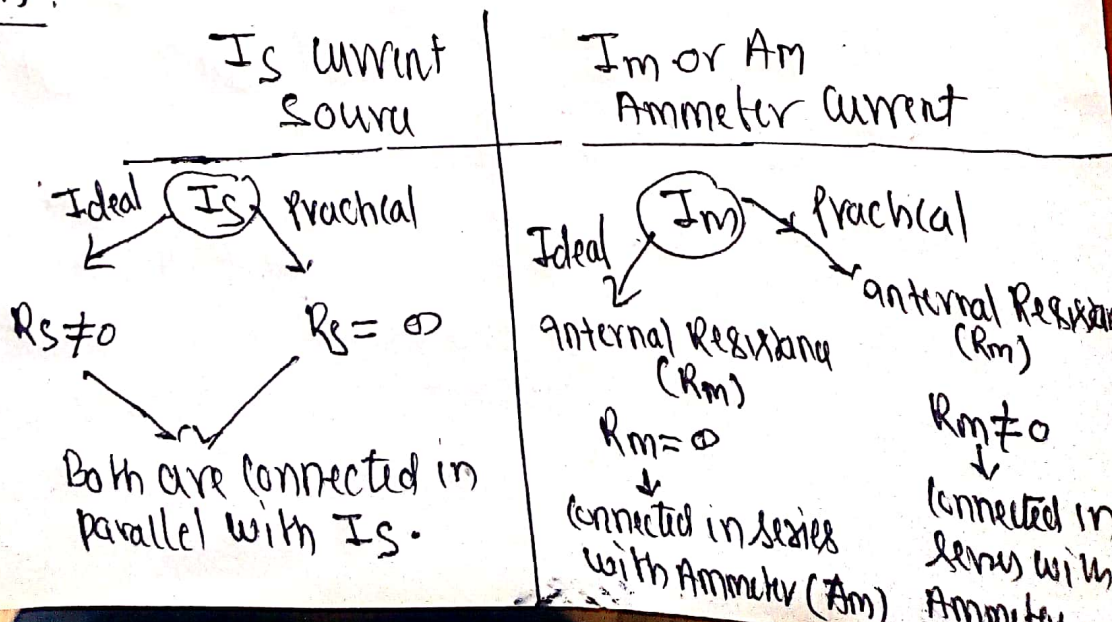 Is current
Source
Ideal Is Practical
Rs ≠ 0 Rs = ∞
Both are connected in
parallel with Is.
Im or Am
Ammeter Current
Im Practical
Ideal
internal Resistance
(Rm)
Rm = ∞
connected in series
with Ammeter (Am)
internal Resistan
(Rm)
Rm ≠ 0
connected in
series with
Ammeter